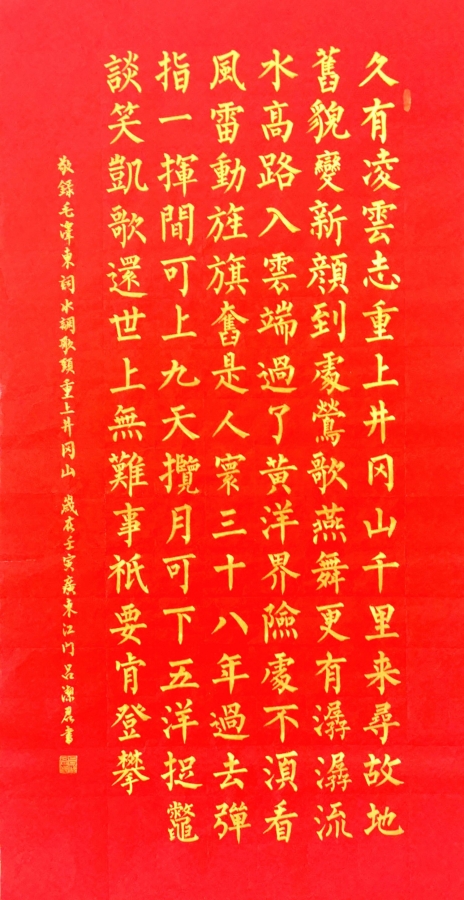 久有凌雲志重上井冈山千里来尋故地
舊貌變新顔到處鶯歌燕舞更有潺潺流
水高路入雲端過了黄洋界險處不湏看
風雷動旌旗奮是人寰三十八年過去彈
指一揮間可上九天攬月可下五洋捉鼈
談笑凱歌還世上無難事衹要肯登攀
敬錄毛澤東詞水調歌頭重上井冈山 歲在壬寅廣東江门吕潔君書